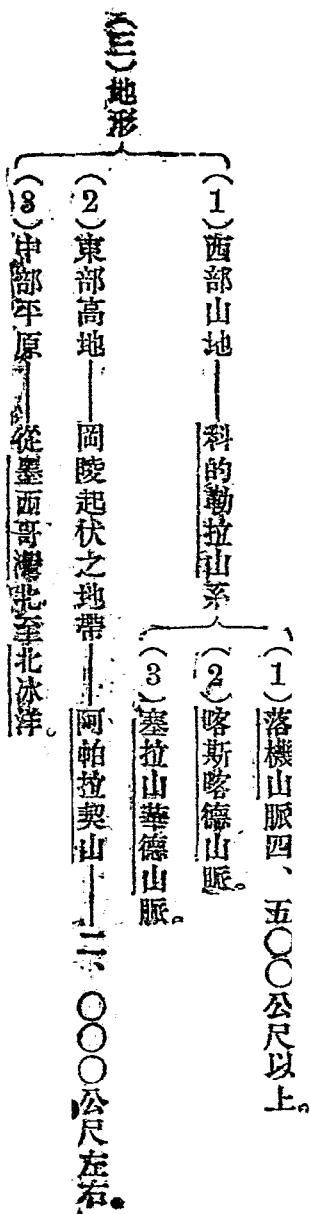 (三)地形
(1)西部山地——科的勒拉山系
(1)落機山脈四、五〇〇公尺以上。
(2)喀斯喀德山脈。
(3)塞拉山華德山脈。
(2)東部高地——岡陵起伏之地帶——阿帕拉契山——二、〇〇〇公尺左右。
(3)中部平原——從墨西哥灣北至北冰洋。